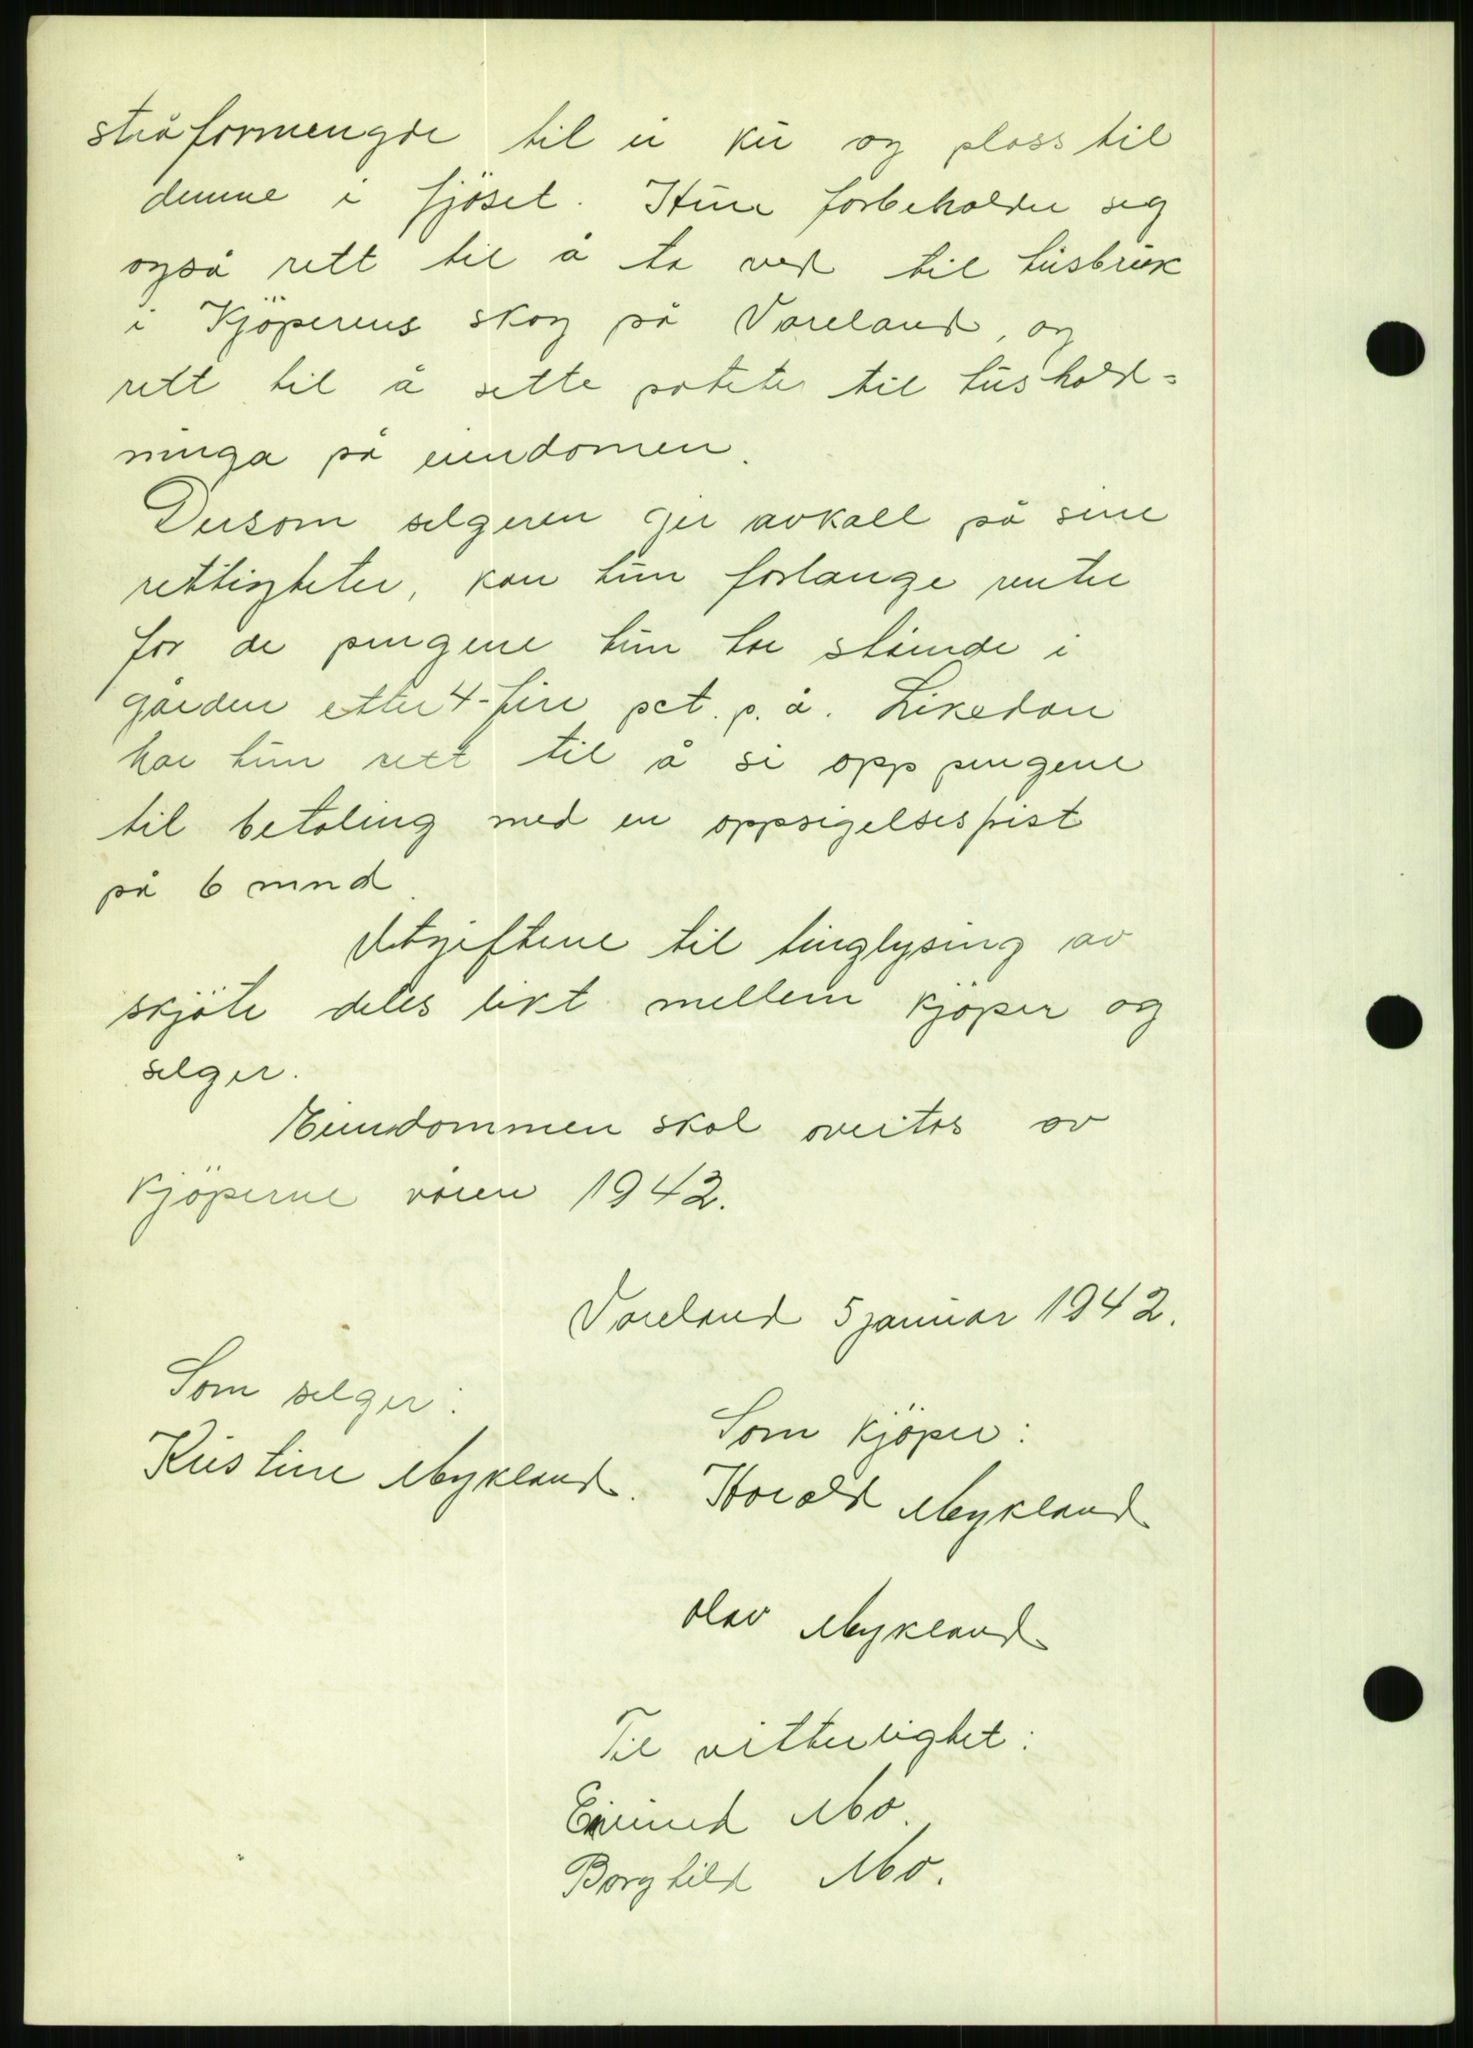 stråformengde til ei ku og plass til
denne i fjöset. Hun forbeholder seg
også rett til å ta ved til husbruk
i Kjöperens skog på Vareland, og
rett til å sette poteter til hushold=
ninga på eiendomen.
Dersom selgeren gir avkall på sine
rettigheter, kan hun forlange renter
for de pengene hun har stående i
gården etter 4-fire pct. p. å. Likedan
har hun rett til å si opp pengene
til betaling med en oppsigelsesfrist
på 6 mnd.
Utgiftene til tinglysing av
skjöte deles likt mellem kjöper og
selger.
Eiendommen skal overtas av
kjöperne våren 1942.
Vareland 5 januar 1942.
Som selger:
Kristine Mykland.
Som kjöper:
Harald Mykland
Olav Mykland
Til vitterlighet:
Eivind Mo.
Borghild Mo.